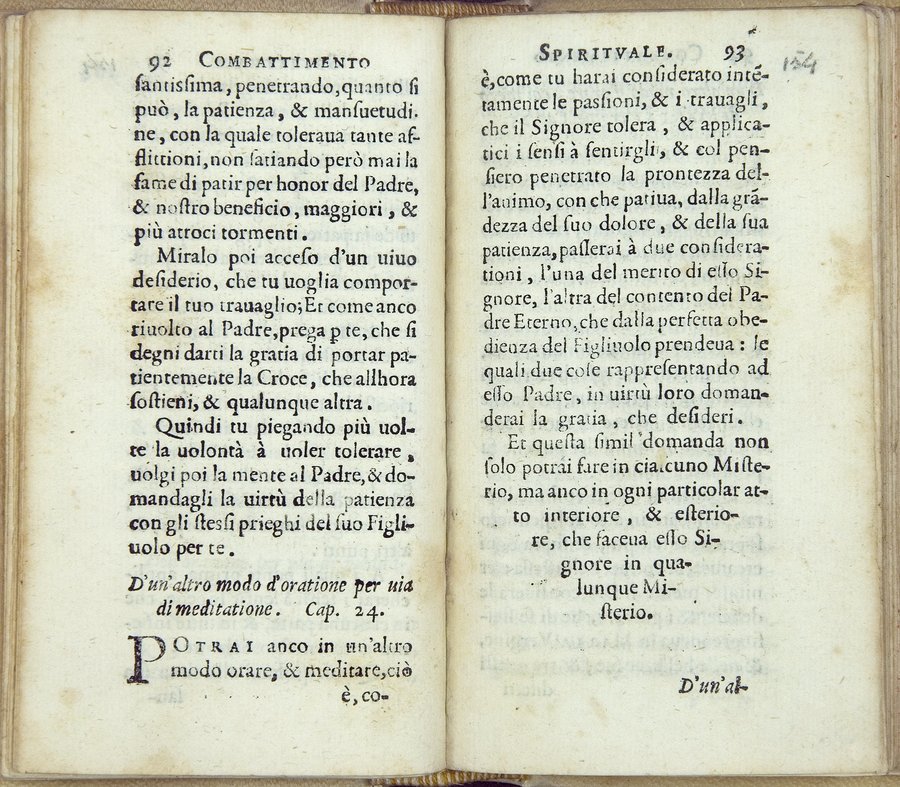 92 COMBATTIMENTO
ſantiſſima, penetrando, quanto ſi
può, la patienza, & manſuetudi-
ne, con la quale toleraua tante af-
flittioni, non ſatiando però mai la
fame di patir per honor del Padre,
& noſtro beneficio, maggiori, &
più atroci tormenti.
Miralo poi acceſo d'un uiuo
deſiderio, che tu uoglia compor-
tare il tuo trauaglio; Et come anco
riuolto al Padre, prega ꝑ te, che ſi
degni darti la gratia di portar pa-
tientemente la Croce, che allhora
ſoſtieni, & qualunque altra.
Quindi tu piegando più uol-
te la uolontà à uoler tolerare,
uolgi poi la mente al Padre, & do-
mandagli la uirtù della patienza
con gli ſteſsi prieghi del ſuo Figli-
uolo per te.
D'un'altro modo d'oratione per uia
di meditatione. Cap. 24.
POTRAI anco in un'altro
modo orare, & meditare, ciò
è, co-
SPIRITVALE. 93
154
è, come tu harai conſiderato intē-
tamente le paſſioni, & i trauagli,
che il Signore tolera, & applica-
tici i ſenſi à ſentirgli, & col pen-
ſiero penetrato la prontezza del-
l'animo, con che patiua, dalla grā-
dezza del ſuo dolore, & della ſua
patienza, paſſerai à due conſidera-
tioni, l'una del merito di eſſo Si-
gnore, l'altra del contento del Pa-
dre Eterno, che dalla perfetta obe-
dienza del Figliuolo prendeua: le
quali due coſe rappreſentando ad
eſſo Padre, in uirtù loro doman-
derai la gratia, che deſideri.
Et queſta ſimil domanda non
ſolo potrai fare in ciaſcuno Miſte-
rio, ma anco in ogni particolar at-
to interiore, & eſterio-
re, che faceua eſſo Si-
gnore in qua-
lunque Mi-
ſterio.
D'un'al-